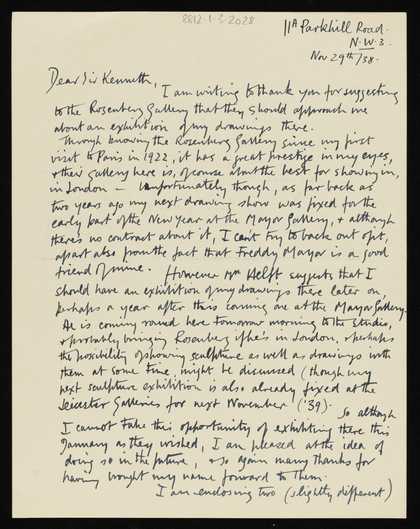 8812-1-3-2028
11A Parkhill Road.
N.W.3.
Nov 29th/38.
Dear Sir Kenneth,
I am writing to thank you for suggesting
to the Rosenberg Gallery that they should approach me
about an exhibition of my drawings there.
Through knowing the Rosenberg Gallery since my first
visit to Paris in 1922, it has a great prestige in my eyes,
& their gallery here is, of course about the best for showing in,
in London — Unfortunately though, as far back as
two years ago my next drawing show was fixed for the
early part of the New Year at the Mayor Gallery, & although
there's no contract about it, I can't try to back out of it,
apart also from the fact that Freddy Mayor is a good
friend of mine. However Mr Helft suggests that I
should have an exhibition of my drawings there later on,
perhaps a year after this coming one at the Mayor Gallery.
He is coming round here tomorrow morning to the studio,
& probably bringing Rosenberg if he's in London, & perhaps
the possibility of showing sculpture as well as drawings with
them at some time, might be discussed (though my
next sculpture exhibition is also already fixed at the
Leicester Galleries for next November ('39).
So although
I cannot take this opportunity of exhibiting there this
January as they wished, I am pleased at the idea of
doing so in the future, & so again many thanks for
having brought my name forward to them.
I am enclosing two (slightly different)